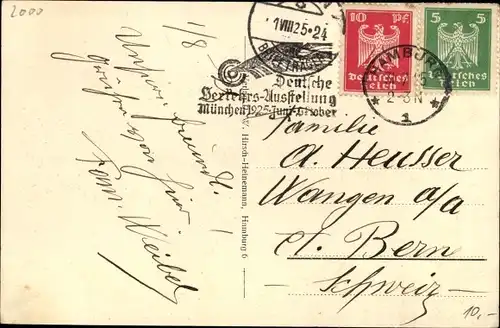 2000
1/8 -
grüssen von hier
Fam. Weibel
W. Hirsch-Heinemann, Hamburg 6
1 VIII 25 · 24
BRIEFTRÄGER
Deutsche
Verkehrs-Ausstellung
München 1925 Juni-Oktober
10 Pf.
Deutsches
Reich
5 5
Deutsches
Reich
HAMBURG
2-3 N
* 1 *
Familie
A. Heusser
Wangen a/a
Ct. Bern
Schweiz
10,-